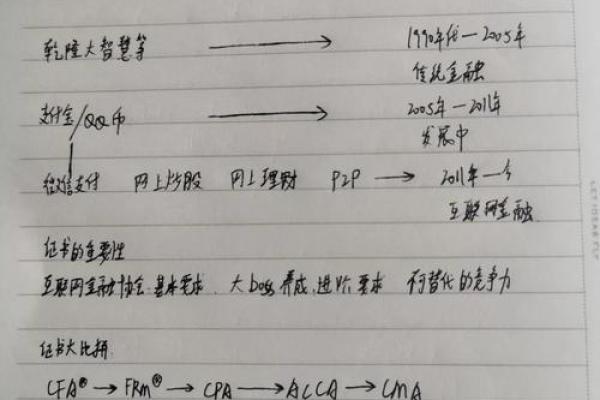 乾隆大智慧等 → 1990年代—2005年
传统金融
支付宝/QQ币 → 2005年—2011年
发展中
微信支付 网上炒股 网上理财 P2P → 2011年—今
互联网金融
证书的重要性
互联网金融协会 基本要求、大boss养成、进阶要求 不可替代的竞争力
证书大比拼
CFA® → FRM® → CPA → ACCA → CMA